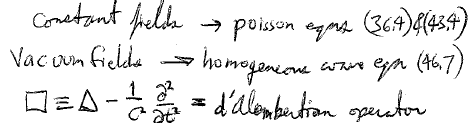 Constant fields → poisson eqns (36,4)&(43,4)
Vacuum fields → homogeneous wave eqn (46,7)
□ ≡ Δ - 1/c² ∂²/∂t² = d'Alembertian operator